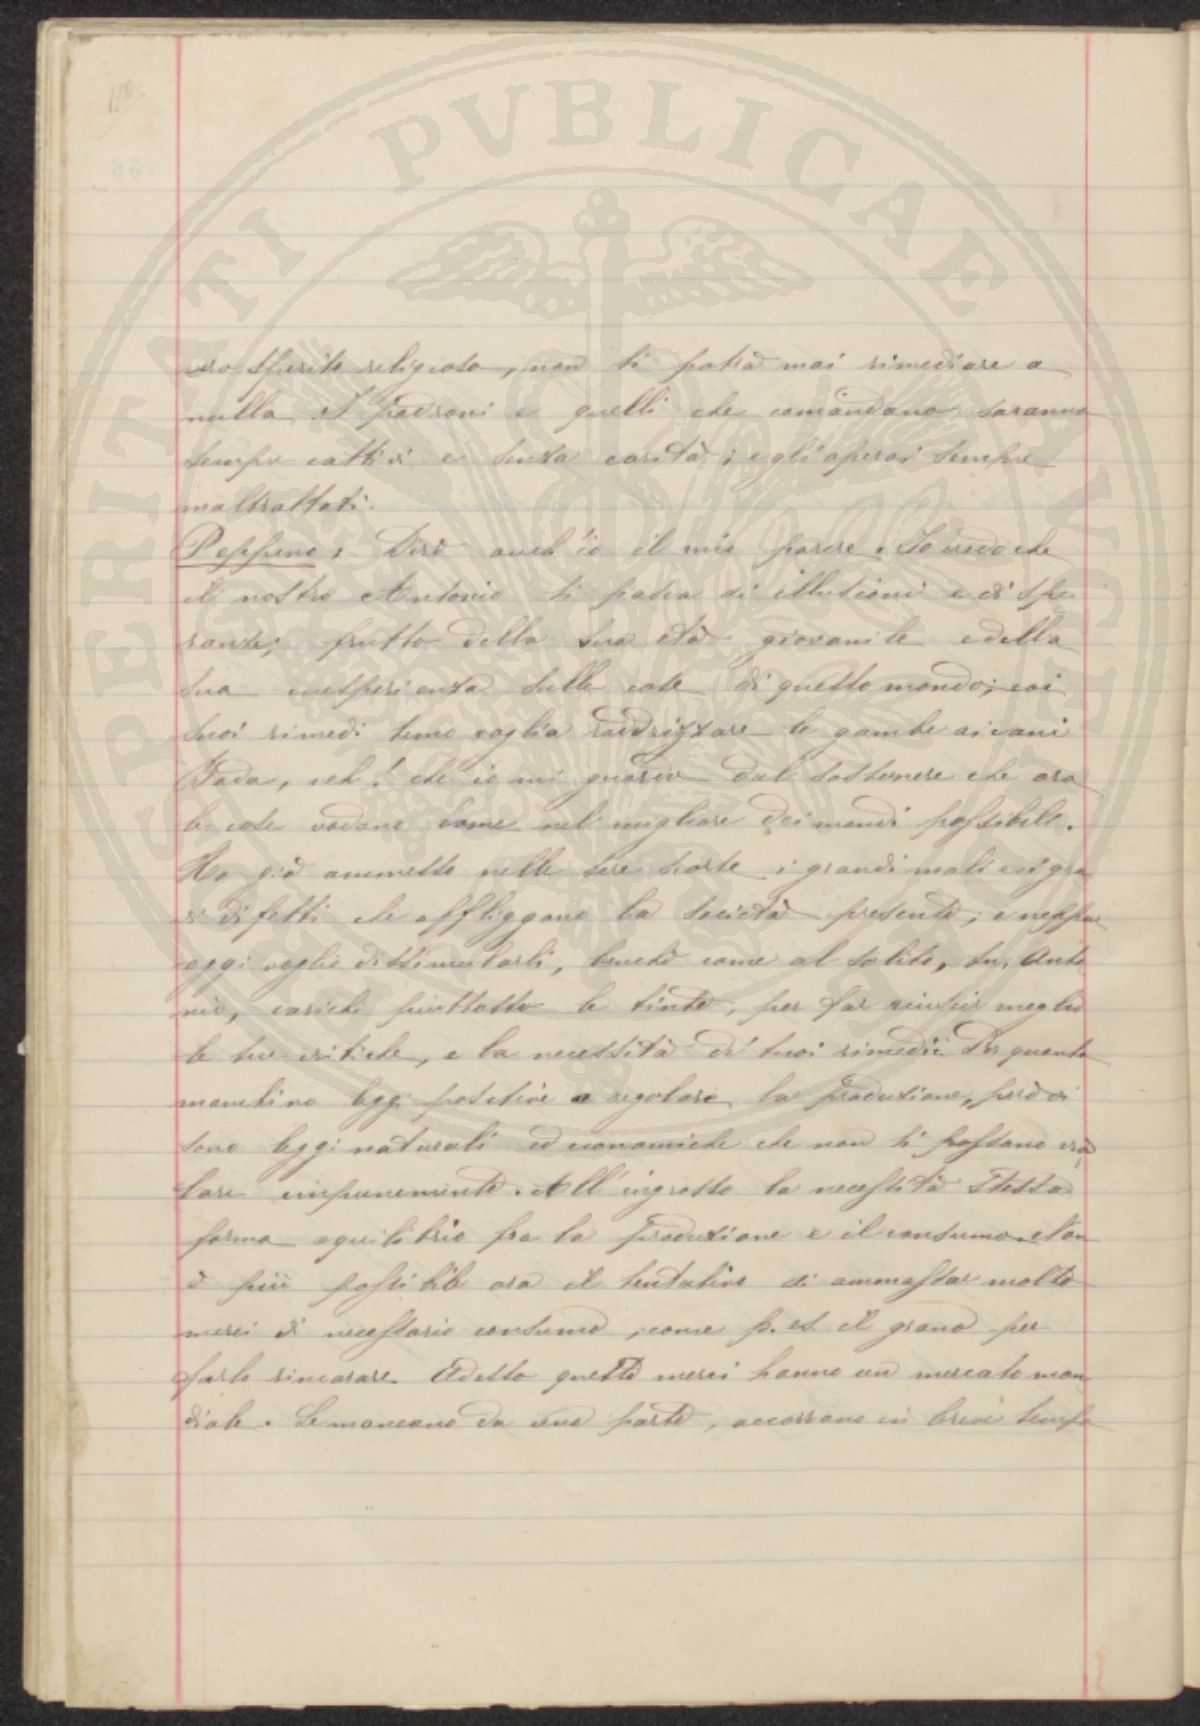 PROSPERITATI PVBLICAE AVGENDAE
ro spirito religioso, non si potrà mai rimediare a
nulla. I padroni e quelli che comandano saranno
sempre cattivi e senza carità; e gli operai sempre
maltrattati.
Peppino. Dirò anch'io il mio parere. Io credo che
il nostro Antonio si pasca di illusioni e di spe
ranze, frutto della sua età giovanile e della
sua inesperienza sulle cose di questo mondo; coi
suoi rimedi temo voglia raddrizzare le gambe ai cani
Bada, veh! che io mi guardo dal sostenere che ora
le cose vadano come nel migliore dei mondi possibili.
Ho già ammesso nelle sere scorse i grandi mali e i gra
vi difetti che affliggono la società presente; e neppur
oggi voglio dissimularli, benchè come al solito, tu, Anto
nio, carichi piuttosto le tinte, per far riuscir meglio
le tue critiche, e la necessità de' tuoi rimedi. Per quanto
manchino leggi positive a regolare la produzione, però vi
sono leggi naturali ed economiche che non si possono vio
lare impunemente. All'ingrosso la necessità stessa
forma equilibrio fra la produzione e il consumo. Non
è più possibile ora il tentativo di ammassar molte
merci di necessario consumo, come p. es. il grano per
farlo rincarare. Adesso queste merci hanno un mercato mon
diale. Se mancano da una parte, accorrono in breve tempo